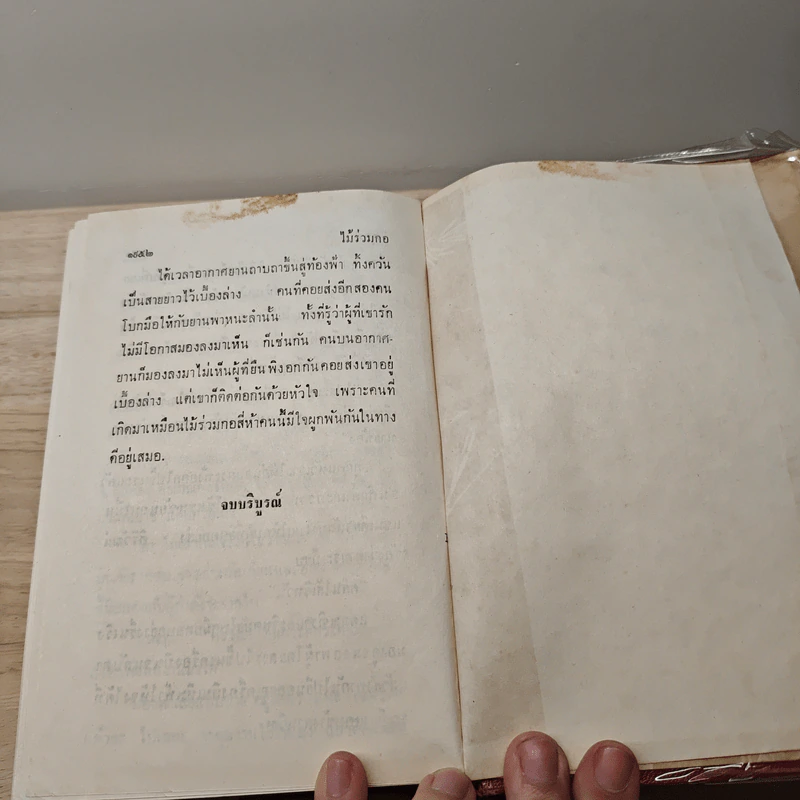 ๑๕๕๒
ไม้ร่วมกอ
ได้เวลาอากาศยานถาบถาขึ้นสู่ท้องฟ้า ทิ้งควัน
เป็นสายยาวไว้เบื้องล่าง คนที่คอยส่งอีกสองคน
โบกมือให้กับยานพาหนะลำนั้น ทั้งที่รู้ว่าผู้ที่เขารัก
ไม่มีโอกาสมองลงมาเห็น ก็เช่นกัน คนบนอากาศ-
ยานก็มองลงมาไม่เห็นผู้ที่ยืนพิงอกกันคอยส่งเขาอยู่
เบื้องล่าง แต่เขาก็ติดต่อกันด้วยหัวใจ เพราะคนที่
เกิดมาเหมือนไม้ร่วมกอสี่ห้าคนนี้มีใจผูกพันกันในทาง
ดีอยู่เสมอ.
จบบริบูรณ์